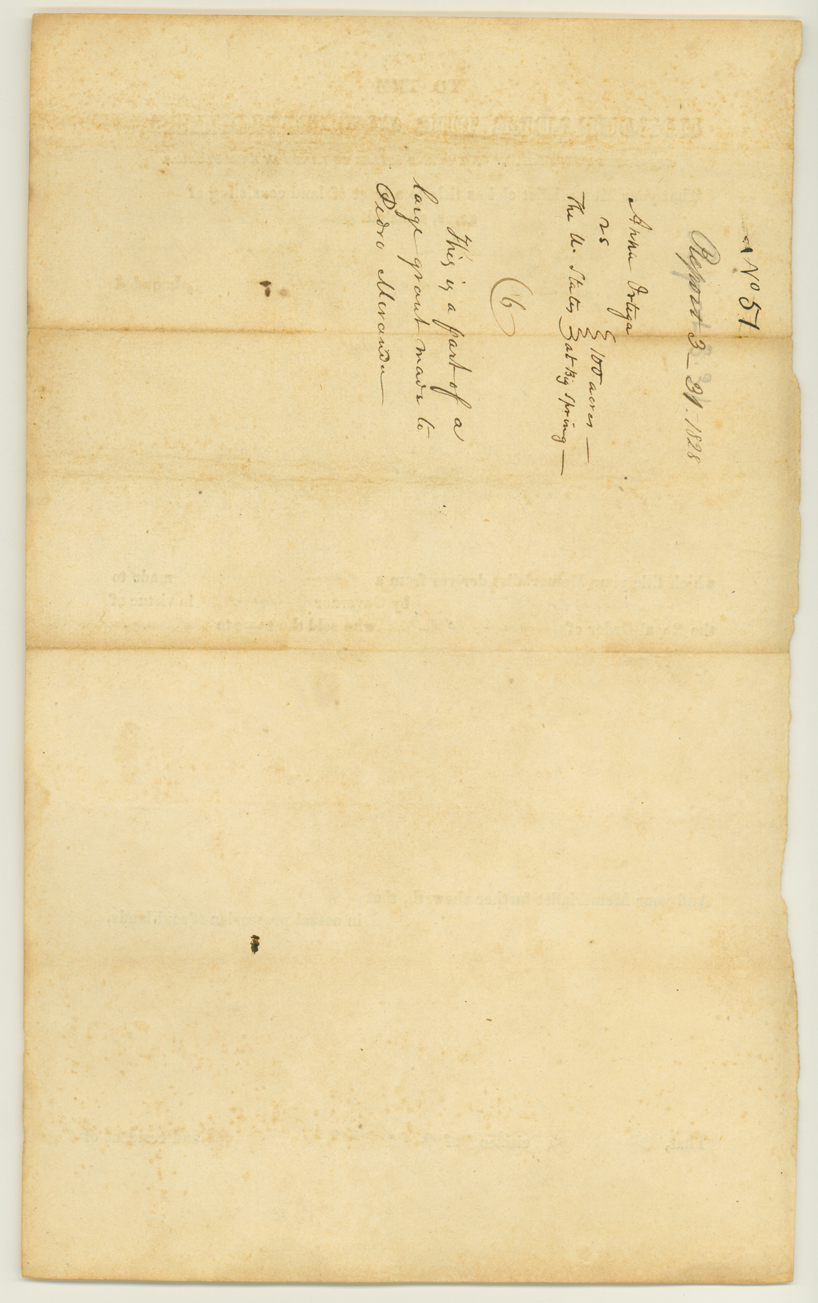 No 51
Report 3 – 21. 1828
Anna Ortiga
vs } 100 acres —
The U. States } at Big Spring —
(6)
This is a part of a
large grant made to
Pedro Miranda —